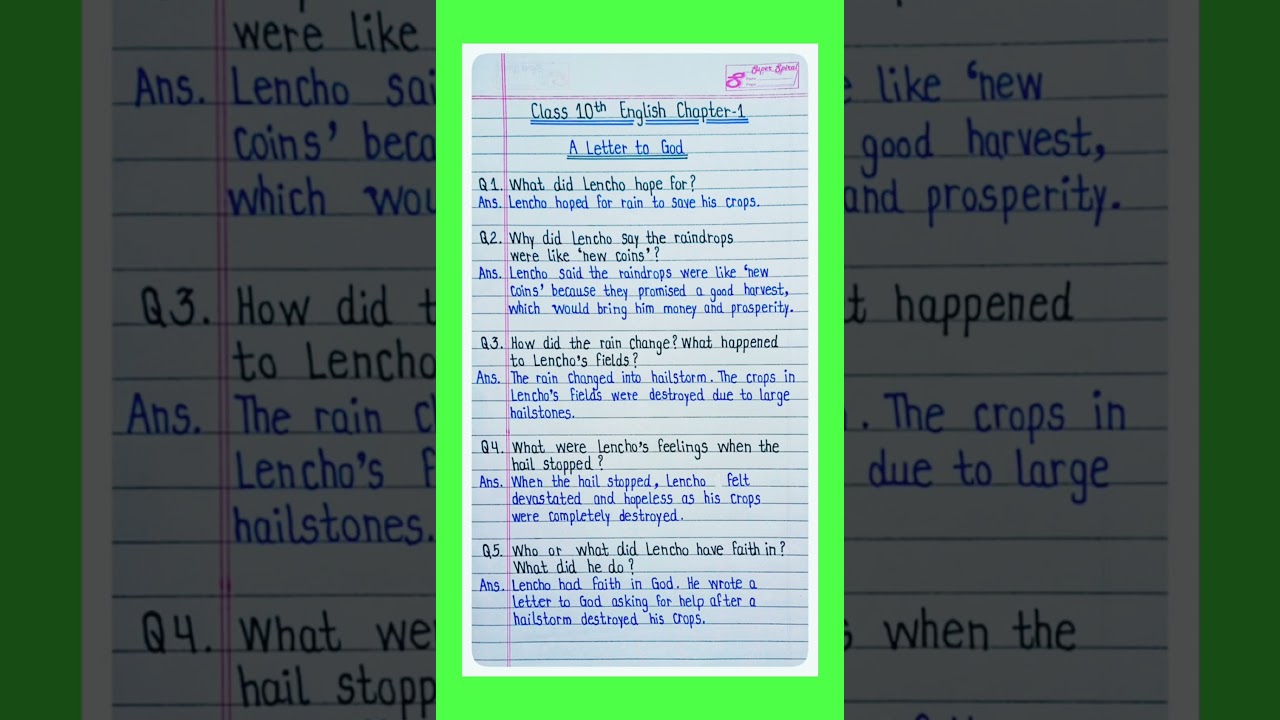 Super Spiral
Class 10th English Chapter-1
A Letter to God
Q1. What did Lencho hope for?
Ans. Lencho hoped for rain to save his crops.
Q2. Why did Lencho say the raindrops
were like 'new coins'?
Ans. Lencho said the raindrops were like 'new
coins' because they promised a good harvest,
which would bring him money and prosperity.
Q3. How did the rain change? What happened
to Lencho's fields?
Ans. The rain changed into hailstorm. The crops in
Lencho's fields were destroyed due to large
hailstones.
Q4. What were Lencho's feelings when the
hail stopped?
Ans. When the hail stopped, Lencho felt
devastated and hopeless as his crops
were completely destroyed.
Q5. Who or what did Lencho have faith in?
What did he do?
Ans. Lencho had faith in God. He wrote a
Letter to God asking for help after a
hailstorm destroyed his crops.
were like
Ans. Lencho sai
coins' beca
which wou
Q3. How did t
to Lencho
Ans. The rain c
Lencho's f
hailstones.
Q4. What we
hail stopp
e like 'new
good harvest,
and prosperity.
t happened
. The crops in
due to large
s when the